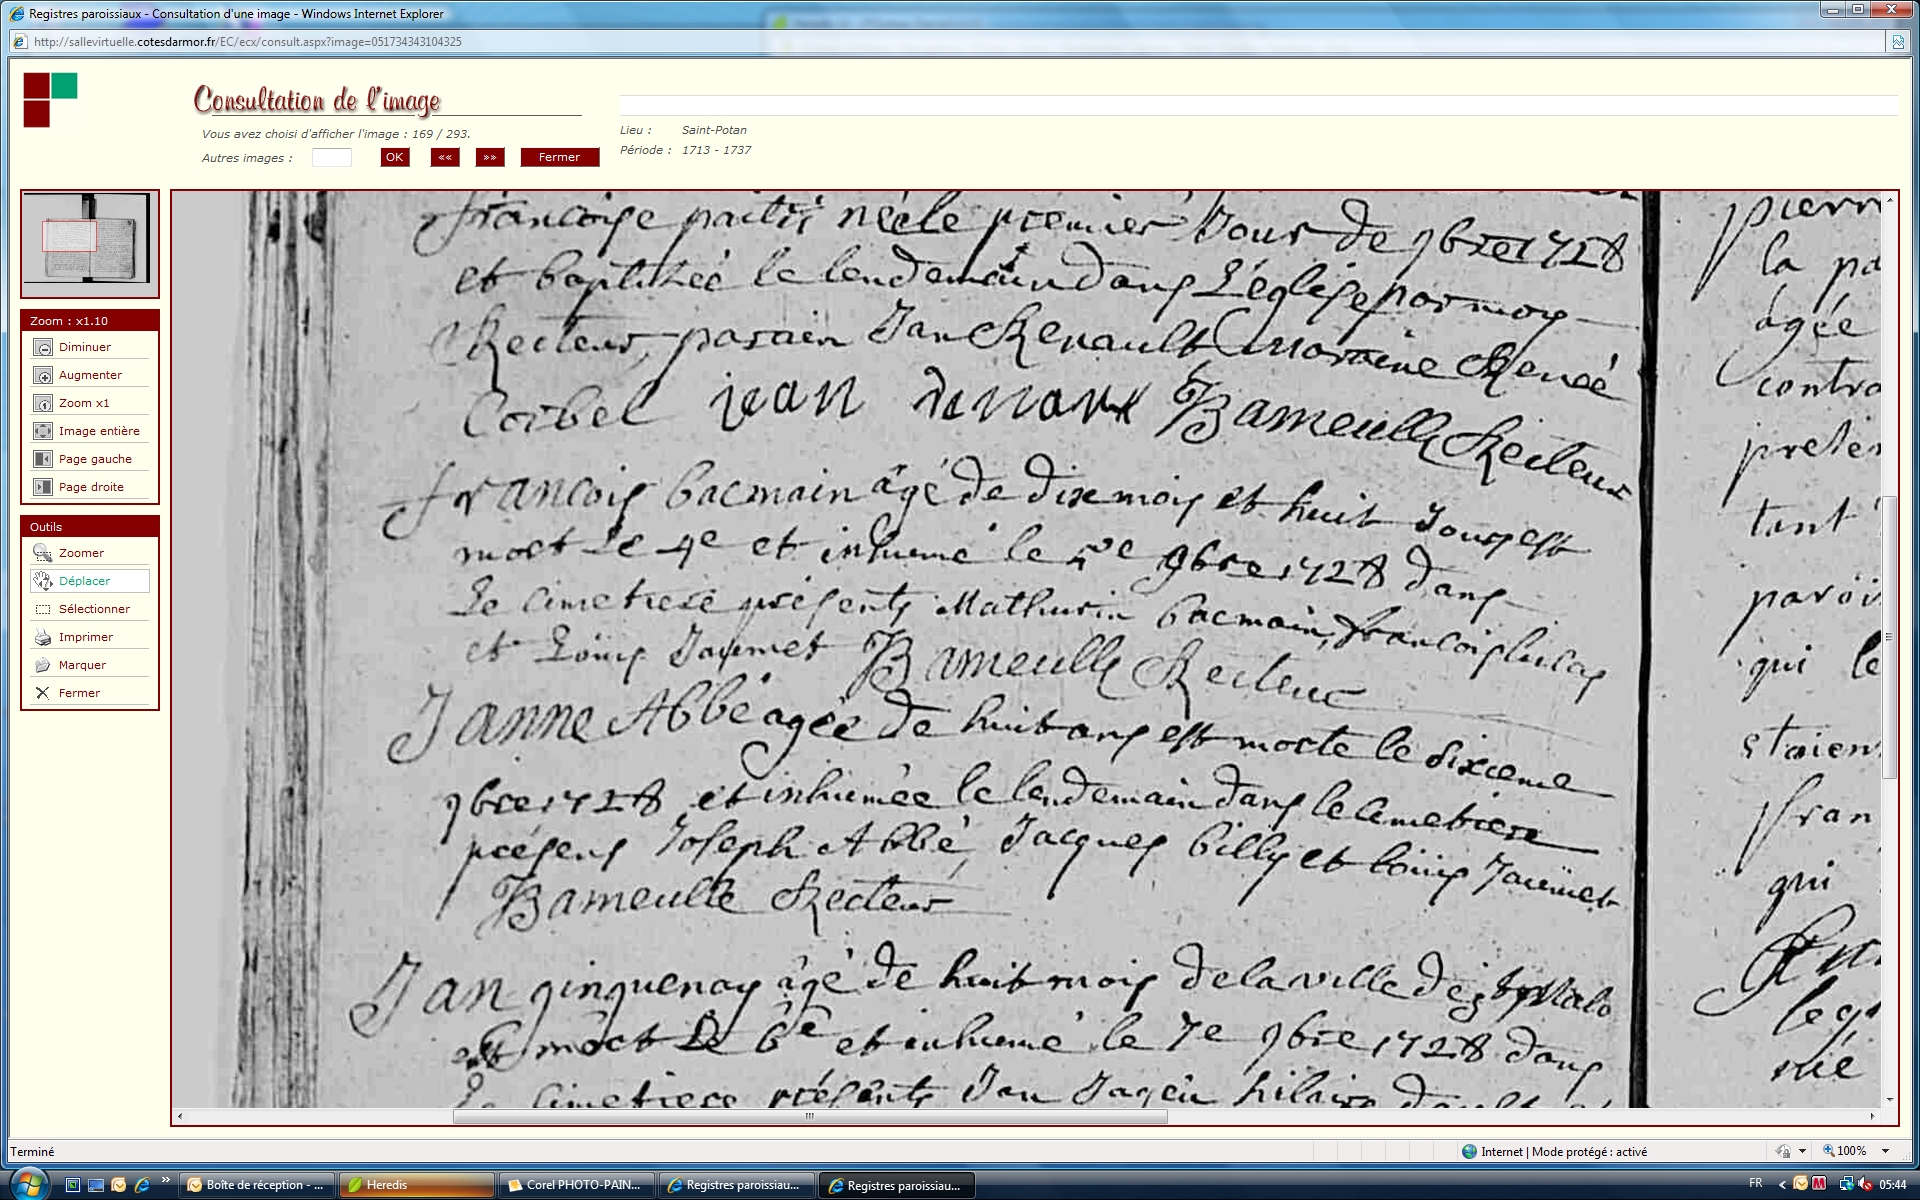 Registres paroissiaux - Consultation d'une image - Windows Internet Explorer
http://sallevirtuelle.cotesdarmor.fr/EC/ecx/consult.aspx?image=051734343104325
Consultation de l'image
Vous avez choisi d'afficher l'image : 169 / 293.
Autres images :
OK
««
»»
Fermer
Lieu : Saint-Potan
Période : 1713 - 1737
Zoom : x1.10
Diminuer
Augmenter
Zoom x1
Image entière
Page gauche
Page droite
Outils
Zoomer
Déplacer
Sélectionner
Imprimer
Marquer
Fermer
francoise née le premier Jour de 9bre 1728
et baptizée le lendemain dans L'église par moy
Recteur, parain Jan Renault, Maraine Renée
Corbel jean renault Bameulle Recteur
francois bacmain âgé de dix mois et huit Jours est
mort Le 4e et inhumé le 5e 9bre 1728 dans
Le cimetiere présents Mathurin bacmain, francois lucas
et Loüis Jaümet Bameulle Recteur
Janne Abbé agée de huit ans est morte le sixieme
9bre 1728 et inhumée le lendemain dans le cemetiere
présens Joseph Abbé, Jacques billy et loüis Jaümet
Bameulle Recteur
Jan ginguenay âgé de huit mois de la ville de St Malo
est mort Le 6e et inhumé le 7e 9bre 1728 dans
Le cimetiere présents Jan hilaire
pierr
la pa
âgée
contra
tant
paroi
qui le
etoien
fran
qui
Terminé
Internet | Mode protégé : activé
100%
Boîte de réception - ...
Heredis
Corel PHOTO-PAIN...
Registres paroissiau...
Registres paroissiau...
FR
05:44